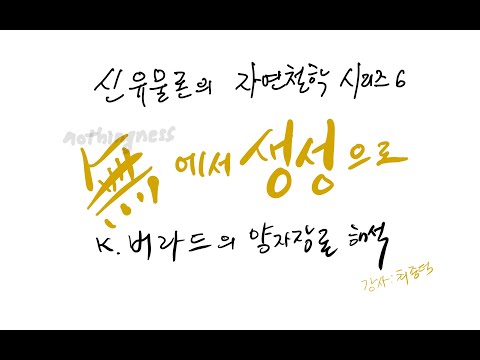 신유물론의 자연철학 시리즈 6
nothingness
無에서 생성으로
K. 버라드의 양자장론 해석
강사: 최종덕